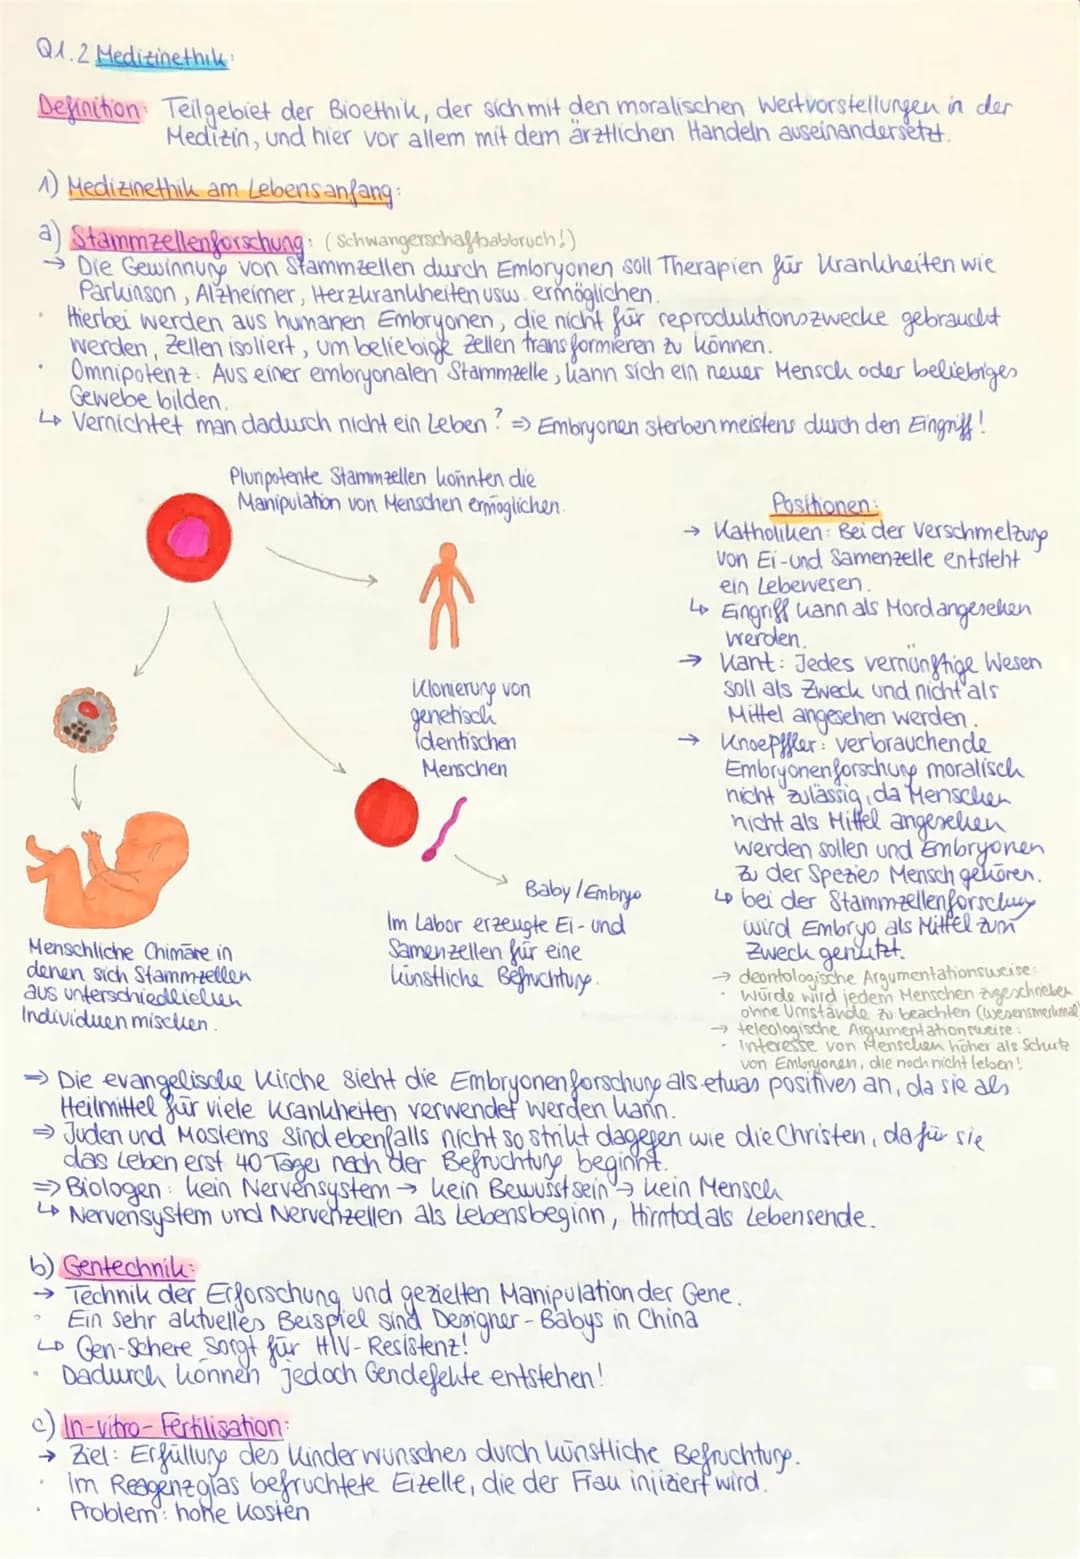 Q1.2 Medizinethik:
Definition: Teilgebiet der Bioethik, der sich mit den moralischen Wertvorstellungen in der
Medizin, und hier vor allem mit dem ärztlichen Handeln auseinandersetzt.
1) Medizinethik am Lebensanfang:
a) Stammzellenforschung: (Schwangerschaftsabbruch!)
→ Die Gewinnung von Stammzellen durch Embryonen soll Therapien für Krankheiten wie
Parkinson, Alzheimer, Herzkrankheiten usw. ermöglichen.
· Hierbei werden aus humanen Embryonen, die nicht für reproduktionszwecke gebraucht
werden, Zellen isoliert, um beliebige Zellen transformieren zu können.
· Omnipotenz: Aus einer embryonalen Stammzelle, kann sich ein neuer Mensch oder beliebiges
Gewebe bilden.
↳ Vernichtet man dadurch nicht ein Leben? ⇒ Embryonen sterben meistens durch den Eingriff!
Pluripotente Stammzellen könnten die
Manipulation von Menschen ermöglichen.
Klonierung von
genetisch
identischen
Menschen
Baby/Embryo
Im Labor erzeugte Ei- und
Samenzellen für eine
künstliche Befruchtung.
Menschliche Chimäre in
denen sich Stammzellen
aus unterschiedlichen
Individuen mischen.
Positionen:
→ Katholiken: Bei der Verschmelzung
von Ei- und Samenzelle entsteht
ein Lebewesen.
↳ Eingriff kann als Mord angesehen
werden.
→ Kant: Jedes vernünftige Wesen
soll als Zweck und nicht als
Mittel angesehen werden.
→ Knoepffler: verbrauchende
Embryonenforschung moralisch
nicht zulässig, da Menschen
nicht als Mittel angesehen
werden sollen und Embryonen
zu der Spezies Mensch gehören.
↳ bei der Stammzellenforschung
wird Embryo als Mittel zum
Zweck genutzt.
→ deontologische Argumentationsweise:
· Würde wird jedem Menschen zugeschrieben
ohne Umstände zu beachten (Wesensmerkmal)
→ teleologische Argumentationsweise:
· Interesse von Menschen höher als Schutz
von Embryonen, die noch nicht leben!
⇒ Die evangelische Kirche sieht die Embryonenforschung als etwas positives an, da sie als
Heilmittel für viele Krankheiten verwendet werden kann.
⇒ Juden und Moslems sind ebenfalls nicht so strikt dagegen wie die Christen, da für sie
das Leben erst 40 Tage nach der Befruchtung beginnt.
⇒ Biologen: kein Nervensystem → kein Bewusstsein → kein Mensch
↳ Nervensystem und Nervenzellen als Lebensbeginn, Hirntod als Lebensende.
b) Gentechnik:
→ Technik der Erforschung und gezielten Manipulation der Gene.
· Ein sehr aktuelles Beispiel sind Designer-Babys in China
↳ Gen-Schere sorgt für HIV-Resistenz!
· Dadurch können jedoch Gendefekte entstehen!
c) In-vitro-Fertilisation:
→ Ziel: Erfüllung des Kinderwunsches durch künstliche Befruchtung.
· im Reagenzglas befruchtete Eizelle, die der Frau injiziert wird.
· Problem: hohe Kosten